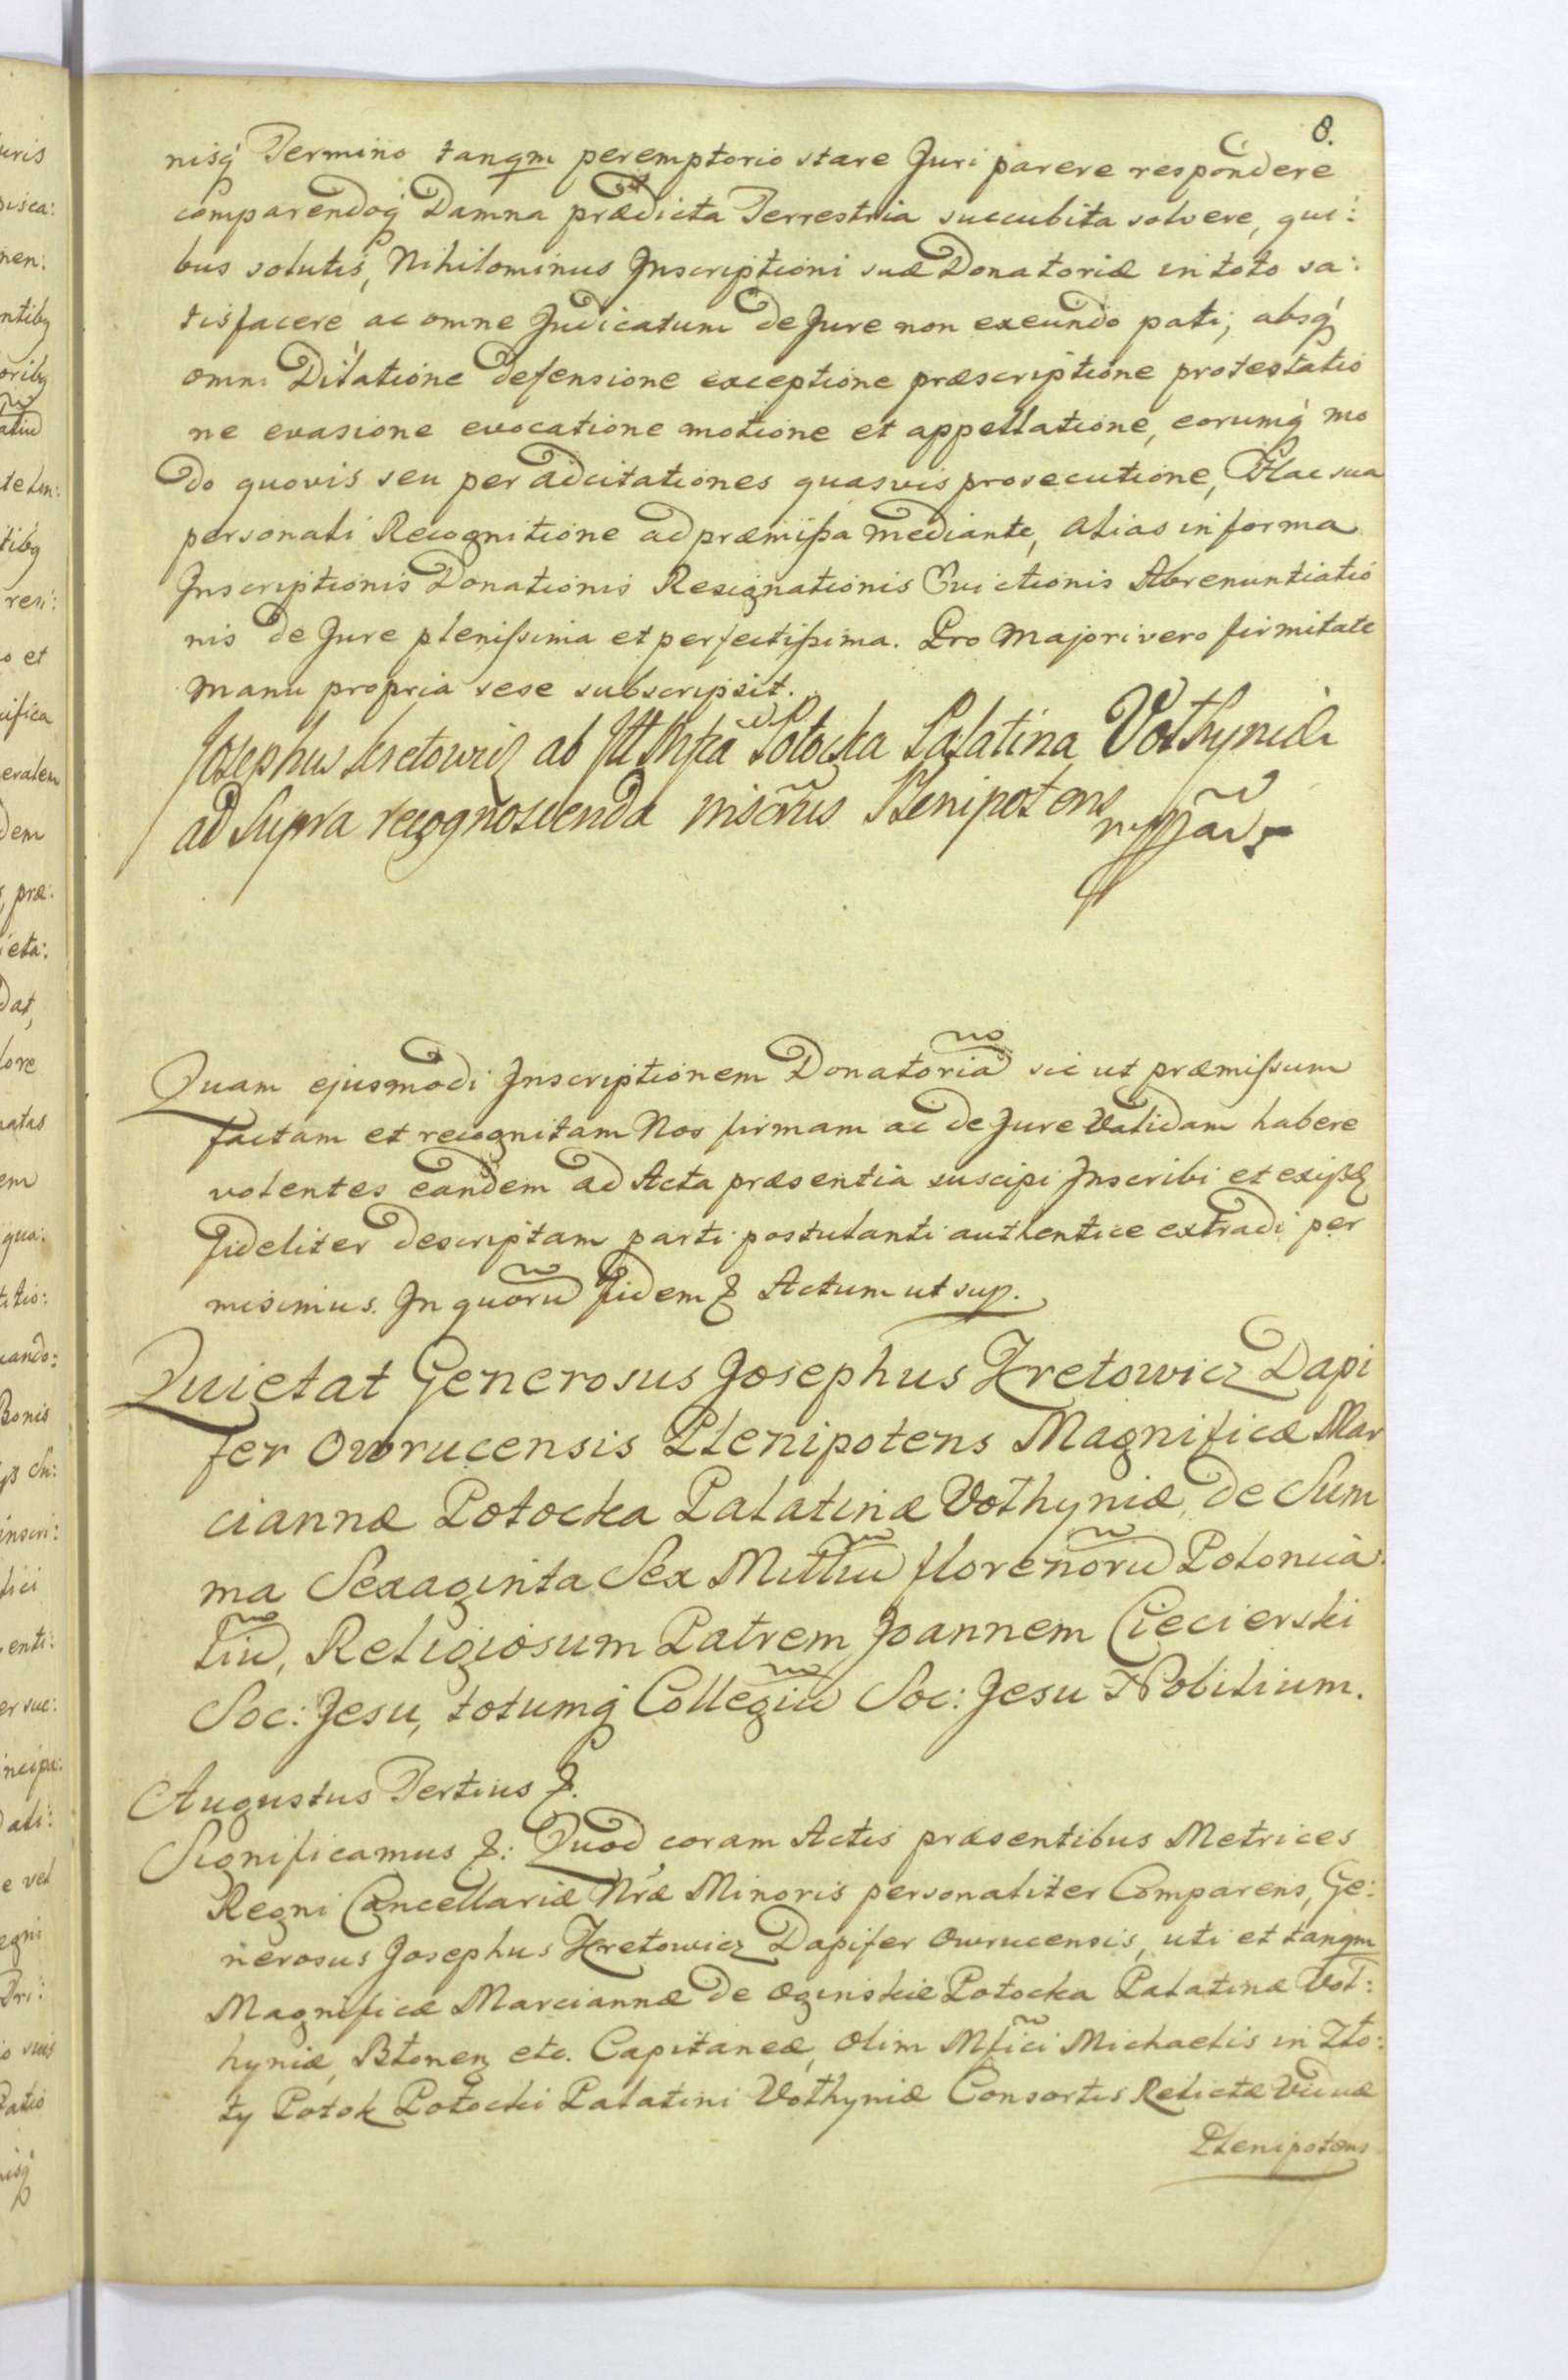 8.
nisq̃ Termino tanqm peremptorio stare Juri parere respondere
comparendoq̃ Damna prædicta Terrestria succubita solvere, qui:
bus solutis, Nihilominus Inscriptioni suæ Donatoriæ in toto sa:
tisfacere ac omne Judicatum de Jure non exeundo pati; absq̃
omni Dilatione defensione exceptione præscriptione protestatio
ne evasione evocatione motione et appellatione, eorumq̃ mo
do quovis seu per adcitationes quasvis prosecutione, Hac sua
personali Recognitione ad præmissa mediante, alias in forma
Inscriptionis Donationis Resignationis Evictionis Abrenuntiatio
nis de Jure plenissima et perfectissima. Pro Majori vero firmitate
manu propria sese subscripsit.
Josephus Hretowicz ab Potocka Palatina Volhyniæ
ad Supra recognoscenda Plenipotens
Quam ejusmodi Inscriptionem Donatoriã sic ut præmissum
factam et recognitam Nos firmam ac de Jure Validam habere
volentes eandem ad Acta præsentia suscipi Inscribi et
fideliter descriptam parti postulanti authentice extradi per
misimus. In quorũ fidem & Actum ut sup.
Quietat Generosus Josephus Hretowicz Dapi
fer Owrucensis Plenipotens Magnificæ Mar
ciannæ Potocka Palatinæ Volhyniæ, de Sum
ma Sexaginta Sex Milliũ florenorũ Polonica
liũ, Religiosum Patrem Joannem Ciecierski
Soc: Jesu, totumq̃ Collegiũ Soc: Jesu Nobilium.
Augustus Tertius &.
Significamus &: Quod coram Actis præsentibus Metrices
Regni Cancellariæ Nræ Minoris personaliter Comparens, Ge:
nerosus Josephus Hretowicz Dapifer Owrucensis, uti et tanqm
Magnificæ Marciannæ de Oginskie Potocka Palatinæ Vol:
hyniæ, Btonen etc. Capitaneæ, olim Mfici Michaelis in Zło:
ty Potok Potocki Palatini Volhyniæ Consortis Relictæ Viduæ
Plenipotens